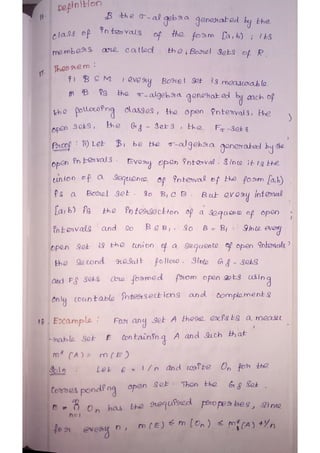 16 Definition
B the σ-algebra generated by the
class of intervals of the form [a,b) ; its
members are called the Borel sets of R.
17 Theorem:
i) B ⊆ M , every Borel set is measurable
ii) B is the σ-algebra generated by each of
the following classes, the open intervals, the
open sets, the Gδ - sets, the Fσ - sets
Proof: ii) Let B1 be the σ-algebra generated by the
open intervals. Every open interval, since it is the
union of a sequence of interval of the form [a,b)
is a Borel set. so B1 ⊂ B. But every interval
[a,b) is the intersection of a sequence of open
intervals and so B ⊆ B1. So B = B1. Since every
open set is the union of a sequence of open intervals
the second result follow. Since Gδ - sets
and Fσ sets are formed from open sets using
only countable intersections and complements
18 Example: For any set A there exists a measu
-rable set E containing A and such that
m* (A) = m(E)
Soln: Let ε = 1/n and write On for the
corresponding open set. Then the Gδ set,
E = ∩ On has the required properties, since
n=1
for every n, m(E) ≤ m(On) ≤ m*(A) + 1/n